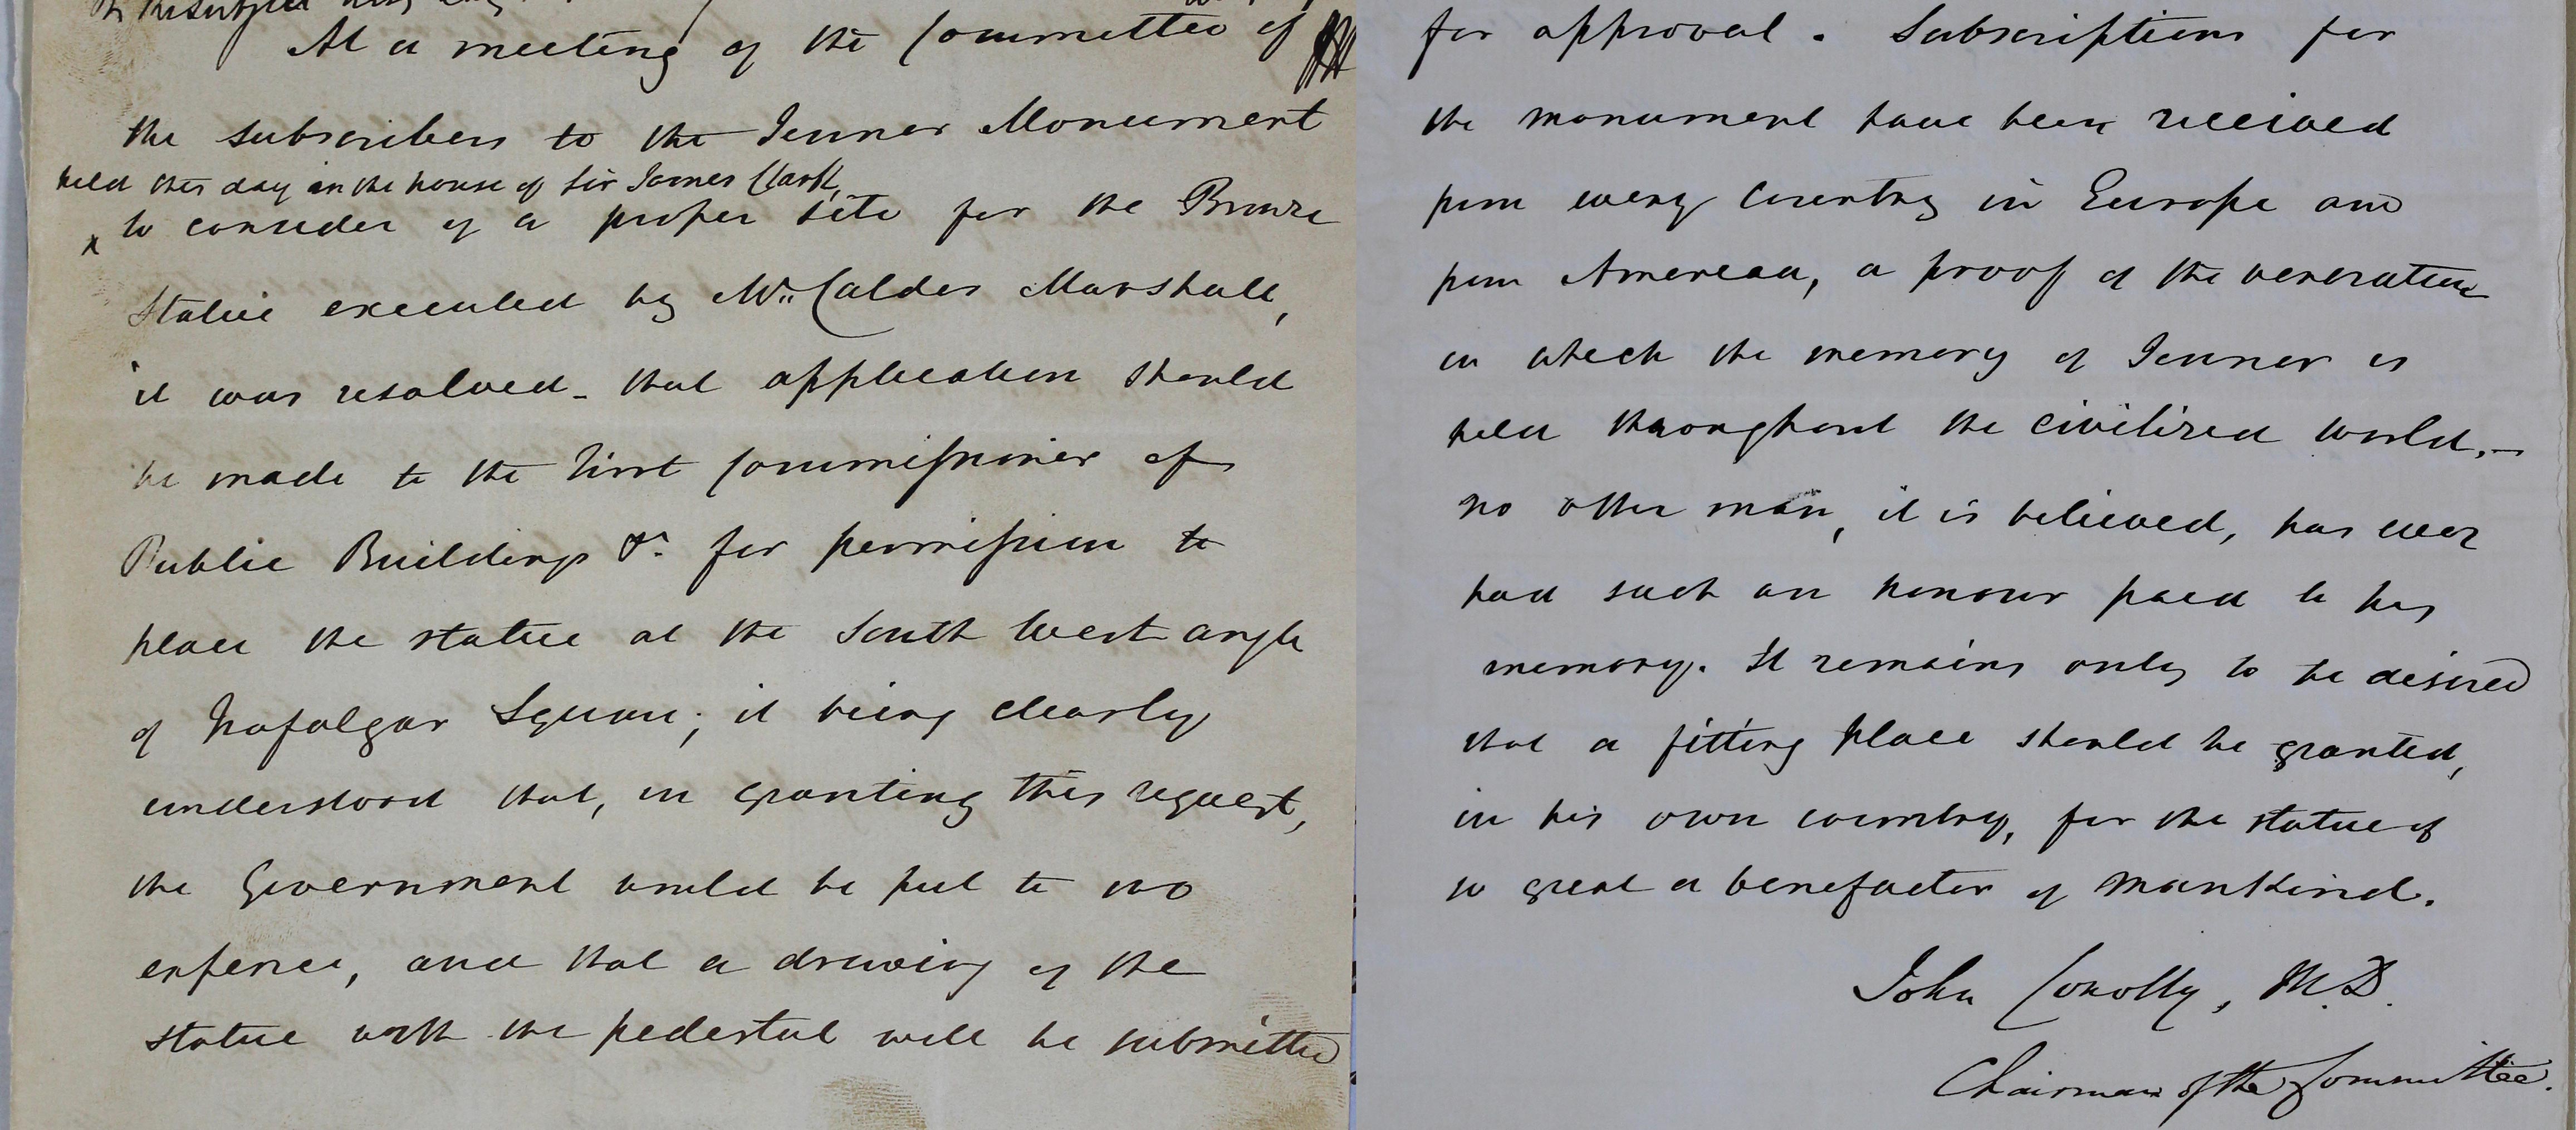 At a meeting of the Committee of
the subscribers to the Jenner Monument
held this day in the house of Sir James Clark,
to consider of a proper site for the Bronze
Statue executed by Mr. Calder Marshall,
it was resolved - that application should
be made to the First Commissioner of
Public Buildings &c. for permission to
place the statue at the South West angle
of Trafalgar Square; it being clearly
understood that, in granting this request,
the Government would be put to no
expence, and that a drawing of the
statue with the pedestal will be submitted
for approval. Subscriptions for
the monument have been received
from every Country in Europe and
from America, a proof of the veneration
in which the memory of Jenner is
held throughout the civilized world. -
No other man, it is believed, has ever
had such an honour paid to his
memory. It remains only to be desired
that a fitting place should be granted,
in his own country, for the statue of
so great a benefactor of mankind.
John Conolly, M.D.
Chairman of the Committee.